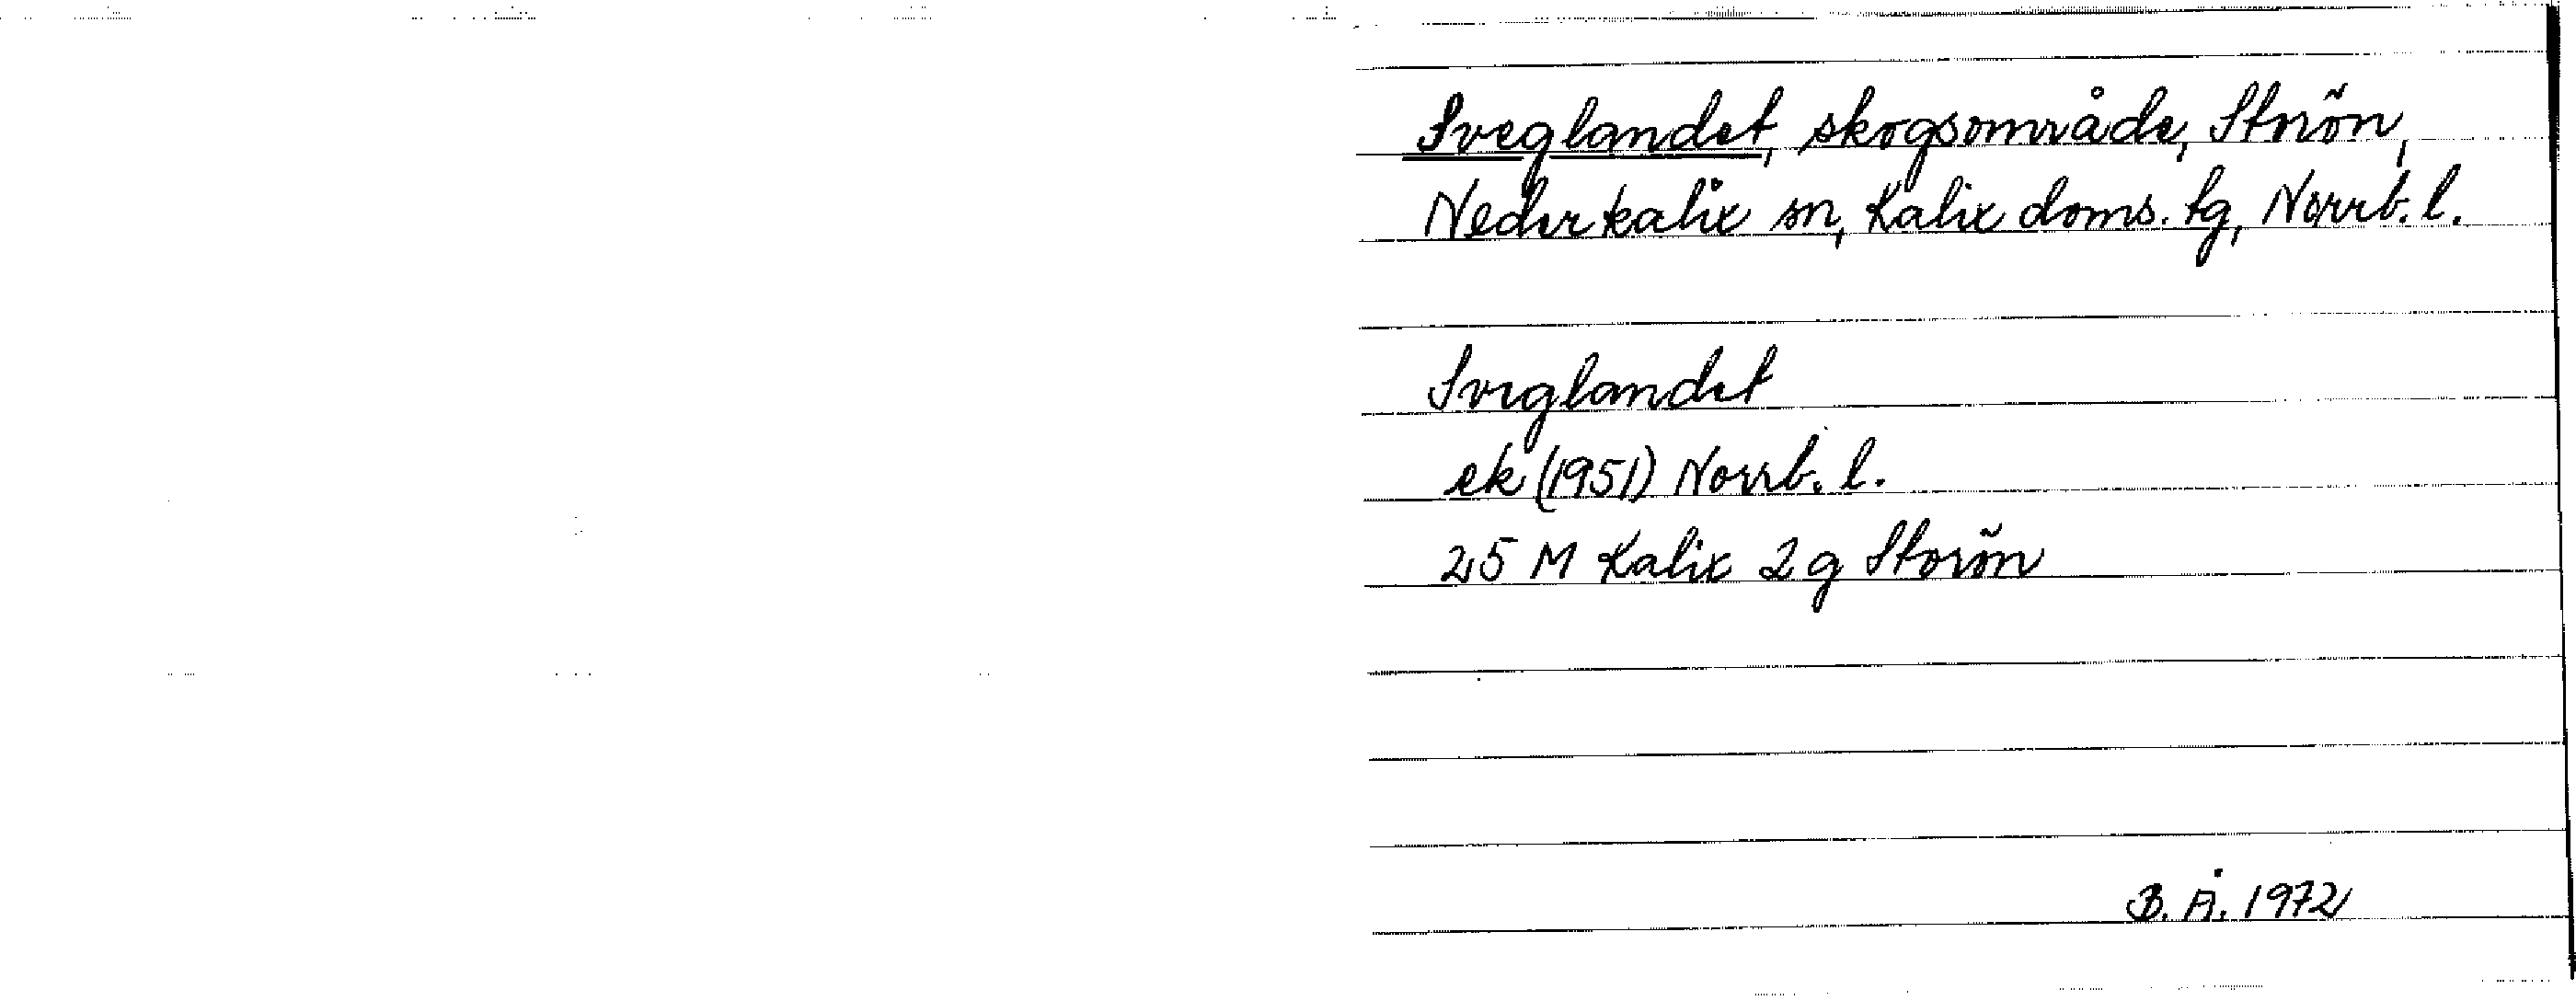 Sveglandet, skogsområde, Storön,
Nederkalix sn, Kalix doms. tg, Norrb. l.
Sveglandet
ek (1951) Norrb. l.
25 M Kalix 2 g Storön
B. Å. 1972